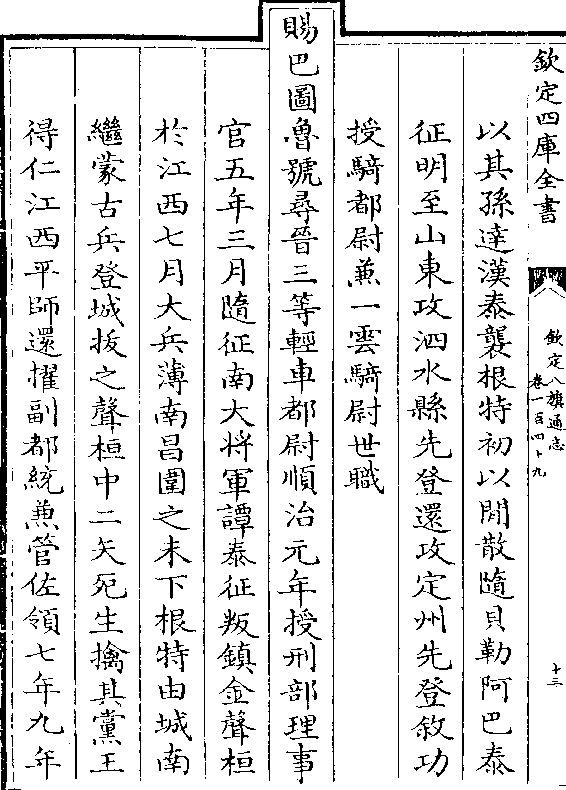 欽定四庫全書
欽定八旗通志
卷一百四十九
十三
以其孫達漢泰襲根特初以閒散隨貝勒阿巴泰
征明至山東攻泗水縣先登還攻定州先登敘功
授騎都尉兼一雲騎尉世職
賜巴圖魯號尋晉三等輕車都尉順治元年授刑部理事
官五年三月隨征南大將軍譚泰征叛鎮金聲桓
於江西七月大兵薄南昌圍之未下根特由城南
繼蒙古兵登城拔之聲桓中二矢死生擒其黨王
得仁江西平師還擢副都統兼管佐領七年九年